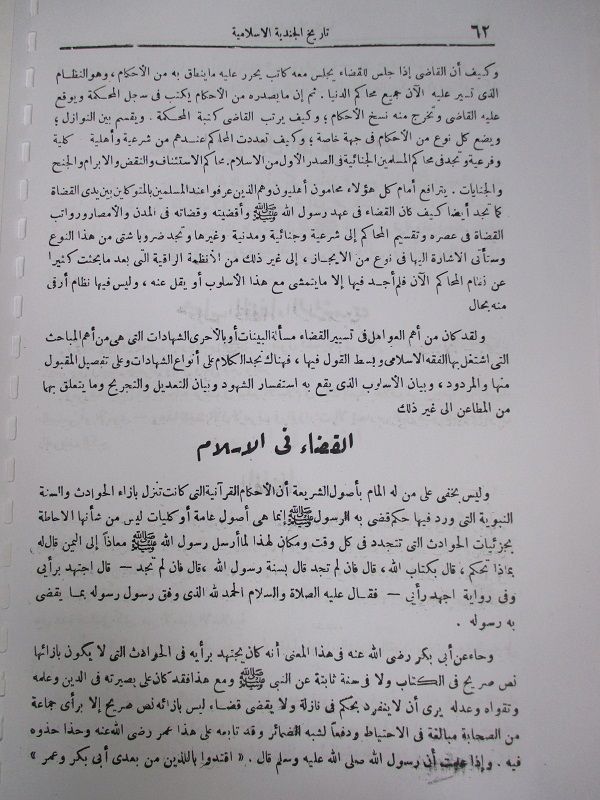 ٦٢
تاريخ الجندية الاسلامية
وكيف أن القاضى إذا جلس للقضاء يجلس معه كاتب يحرر عليه ماينطق به من الأحكام ، وهو النظام
الذى تسير عليه الآن جميع محاكم الدنيا . ثم إن مايصدره من الأحكام يكتب فى سجل المحكمة ويوقع
عليه القاضى وتخرج منه نسخ الأحكام ؛ وكيف يرتب القاضى كتبة المحكمة . ويقسم بين النوازل ؛
ويضع كل نوع من الأحكام فى جهة خاصة ؛ وكيف تعددت المحاكم عندهم من شرعية وأهلية كلية
وفرعية وتجد فى محاكم المسلمين الجنائية فى الصدر الأول من الاسلام . محاكم الاستئناف والنقض والابرام والجنح
والجنايات . يترافع أمام كل هؤلاء محامون أهليون وهم الذين عرفوا عند المسلمين بالمتوكلين بين يدى القضاة
كما تجد أيضا كيف كان القضاء فى عهد رسول الله ﷺ وأقضيته وقضاته فى المدن والأمصار ورواتب
القضاة فى عصره وتقسيم المحاكم إلى شرعية وجنائية ومدنية وغيرها وتجد ضروبا شتى من هذا النوع
وستأتى الاشارة اليها فى نوع من الايجاز ، إلى غير ذلك من الأنظمة الراقية التى بعد ما بحثت كثيرا
عن نظام المحاكم الآن فلم أجد فيها إلا ما يتمشى مع هذا الأسلوب أو يقل عنه ، وليس فيها نظام أرقى
منه بحال
ولقد كان من أهم العوامل فى تسيير القضاء مسألة البينات أو بالأحرى الشهادات التى هى من أهم المباحث
التى اشتغل بها الفقه الاسلامى وبسط القول فيها ، فهناك نجد الكلام على أنواع الشهادات وعلى تفصيل المقبول
منها والمردود ، وبيان الأسلوب الذى يقع به استفسار الشهود وبيان التعديل والتجريح وما يتعلق بهما
من المطاعن الى غير ذلك
القضاء فى الاسلام
وليس يخفى على من له المام بأصول الشريعة أن الأحكام القرآنية التى كانت تنزل بازاء الحوادث والسنة
النبوية التى ورد فيها حكم قضى به الرسول ﷺ إنما هى أصول عامة أو كليات ليس من شأنها الاحاطة
بجزئيات الحوادث التى تتجدد فى كل وقت ومكان لهذا لما أرسل رسول الله ﷺ معاذاً إلى اليمن قال له
بماذا تحكم ، قال بكتاب الله ، قال فان لم تجد قال بسنة رسول الله ، قال فان لم تجد — قال اجتهد برأيى
وفى رواية اجهد رأيى — فقال عليه الصلاة والسلام الحمد لله الذى وفق رسول رسوله بما يقضى
به رسوله .
وجاء عن أبى بكر رضى الله عنه فى هذا المعنى أنه كان يجتهد برأيه فى الحوادث التى لا يكون بازائها
نص صريح فى الكتاب ولا فى سنة ثابتة عن النبى ﷺ ومع هذا فقد كان على بصيرته فى الدين وعلمه
وتقواه وعدله يرى أن لا ينفرد بحكم فى نازلة ولا يقضى قضاء ليس بازائه نص صريح إلا برأى جماعة
من الصحابة مبالغة فى الاحتياط ودفعاً لشبه الضمائر وقد تابعه على هذا عمر رضى الله عنه وحذا حذوه
فيه . وإذا علمت أن رسول الله صلى الله عليه وسلم قال . « اقتدوا باللذين من بعدى أبى بكر وعمر »